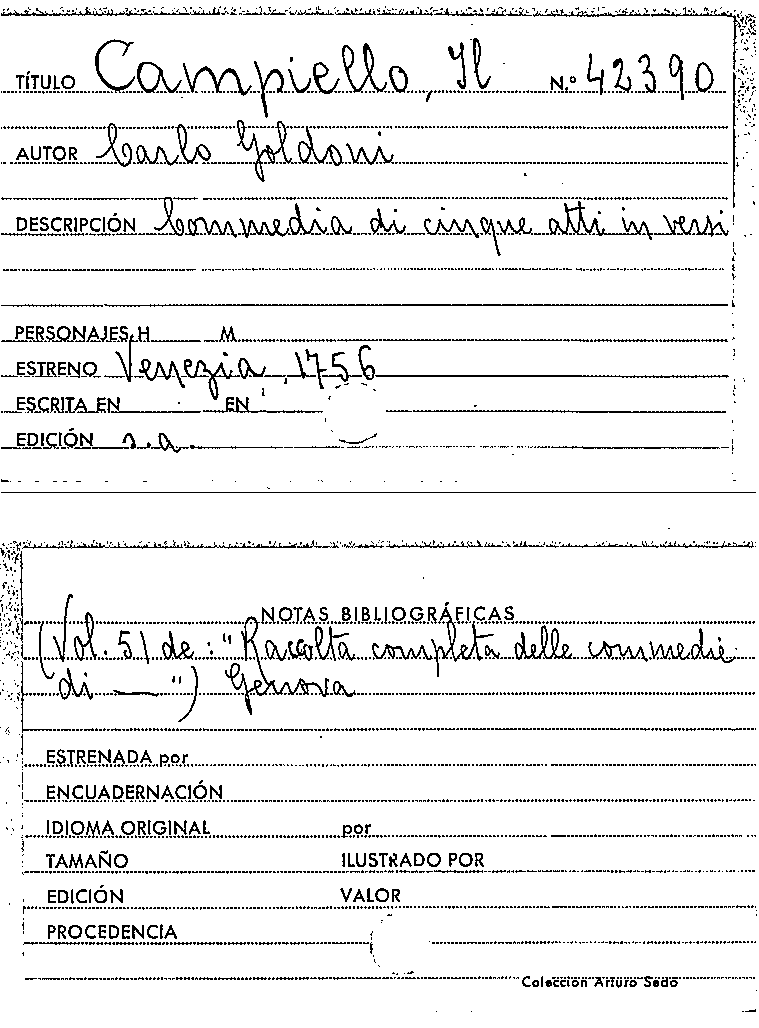 TÍTULO Campiello, Il N.º 42390
AUTOR Carlo Goldoni
DESCRIPCIÓN Commedia di cinque atti in versi
PERSONAJES, H M
ESTRENO Venezia, 1756
ESCRITA EN EN
EDICIÓN s.a.
NOTAS BIBLIOGRÁFICAS
(Vol. 51 de: "Raccolta completa delle commedie
di — ") Genova
ESTRENADA por
ENCUADERNACIÓN
IDIOMA ORIGINAL por
TAMAÑO ILUSTRADO POR
EDICIÓN VALOR
PROCEDENCIA
Colección Arturo Sedó